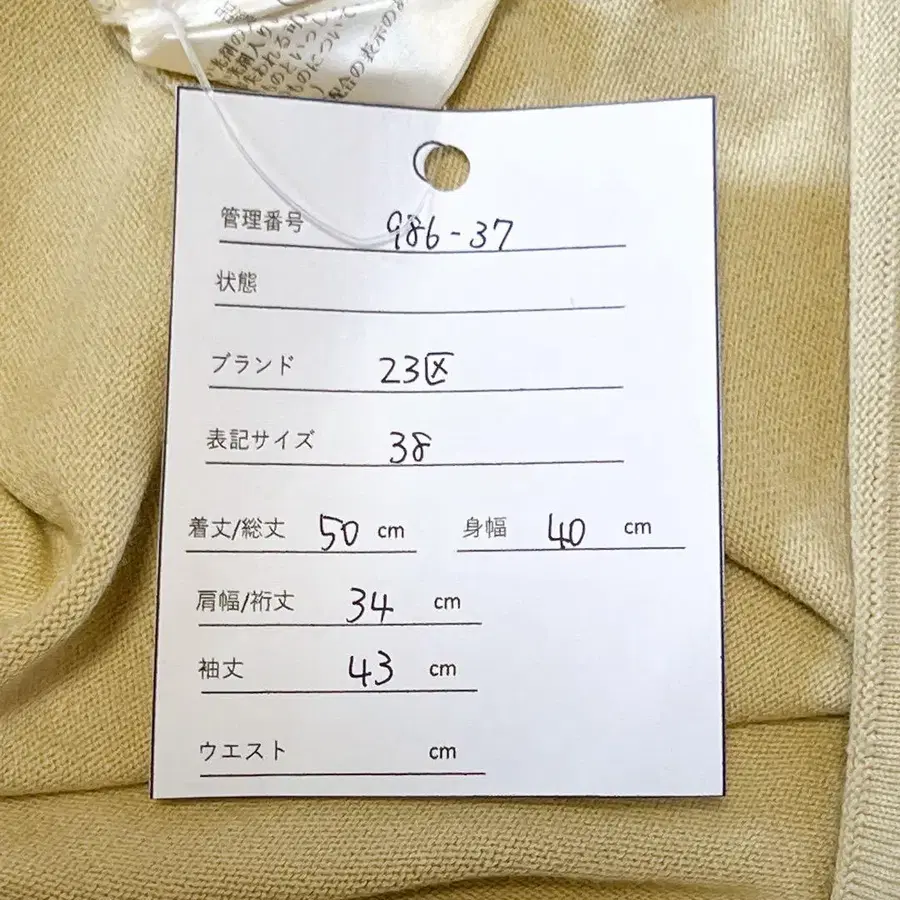 管理番号 986-37
状態
ブランド 23区
表記サイズ 38
着丈/総丈 50 cm 身幅 40 cm
肩幅/裄丈 34 cm
袖丈 43 cm
ウエスト cm